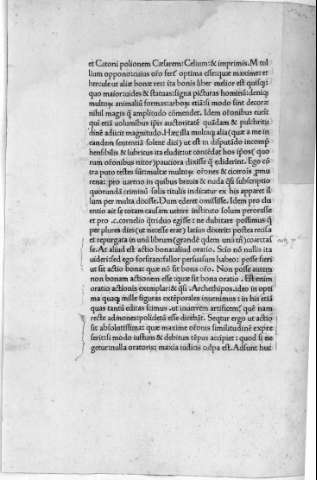 et Catoni polionem Cæsarem: Celium: & in primis. M tul
lium opponit: cuius orõ fert' optima esse: quæ maxime: et
hercule ut aliæ bonæ res: ita bonis liber melior est quisq:
quo maior: uides & statuas: signa picturas hominũ: deniq
multoꝝ animaliũ formas: arboꝝ etiã: si modo sint decoræ
nihil magis q̃ amplitudo cõmendet. Idem orõnibus euẽit
qui etiã uolumībus ipīs auctoritatē quãdam & pulchritu
dinē adiicit magnitudo. Hæc illa multaq alia: quæ a me in
eandem sententiã solent dici: ut est in disputãdo incompre
hensibilis & lubricus ita eludit: ut contẽdat hos ipsos: quo
rum orõnibus nitor: pauciora dixisse q̃ ediderint. Ego cõ
tra puto: testes sunt multæ multoꝝ orõnes & ciceronis pro mu
rena: pro uareno in quibus breuis & nuda q̃si subscriptio
quorundã criminũ solis titulis indicatur: ex his apparet il
lum per multa dixisse. Dum ederet omisisse. Idem pro clu
entio ait se totam causam uetere instituto solum perorasse
et pro .c. cornelio q̃triduo egisse: ne dubitare possimus q̃
per plures dies: ut necesse erat: latius dixerit: postea recisa
et repurgata in unũ librum: grandē q̃dem unũ tñ: coartas
se. At aliud est actio bona: aliud oratio. Scio nõ nullis ita
uideri: sed ego forsitan: fallor persuasum habeo: posse fieri
ut sit actio bona: quæ nõ sit bona orõ. Non posse autem
non bonam actionem esse: quæ sit bona oratio. Est enim
oratio actionis exemplar: et q̃si. Archethipos. ideo in opti
ma quaq mille figuras extẽporales inuenimus: in his etiã
quas tantũ editas scimus
recte admonet: polideti esse dicebãt. Seqtur ergo ut actio
sit absolutissima: quæ maxime orõnis similitudinē expre
serit: si modo iustum & debitum tẽpus accipiat: quod si ne
getur: nulla oratoris: maxia iudicis culpa est. Adsunt huic